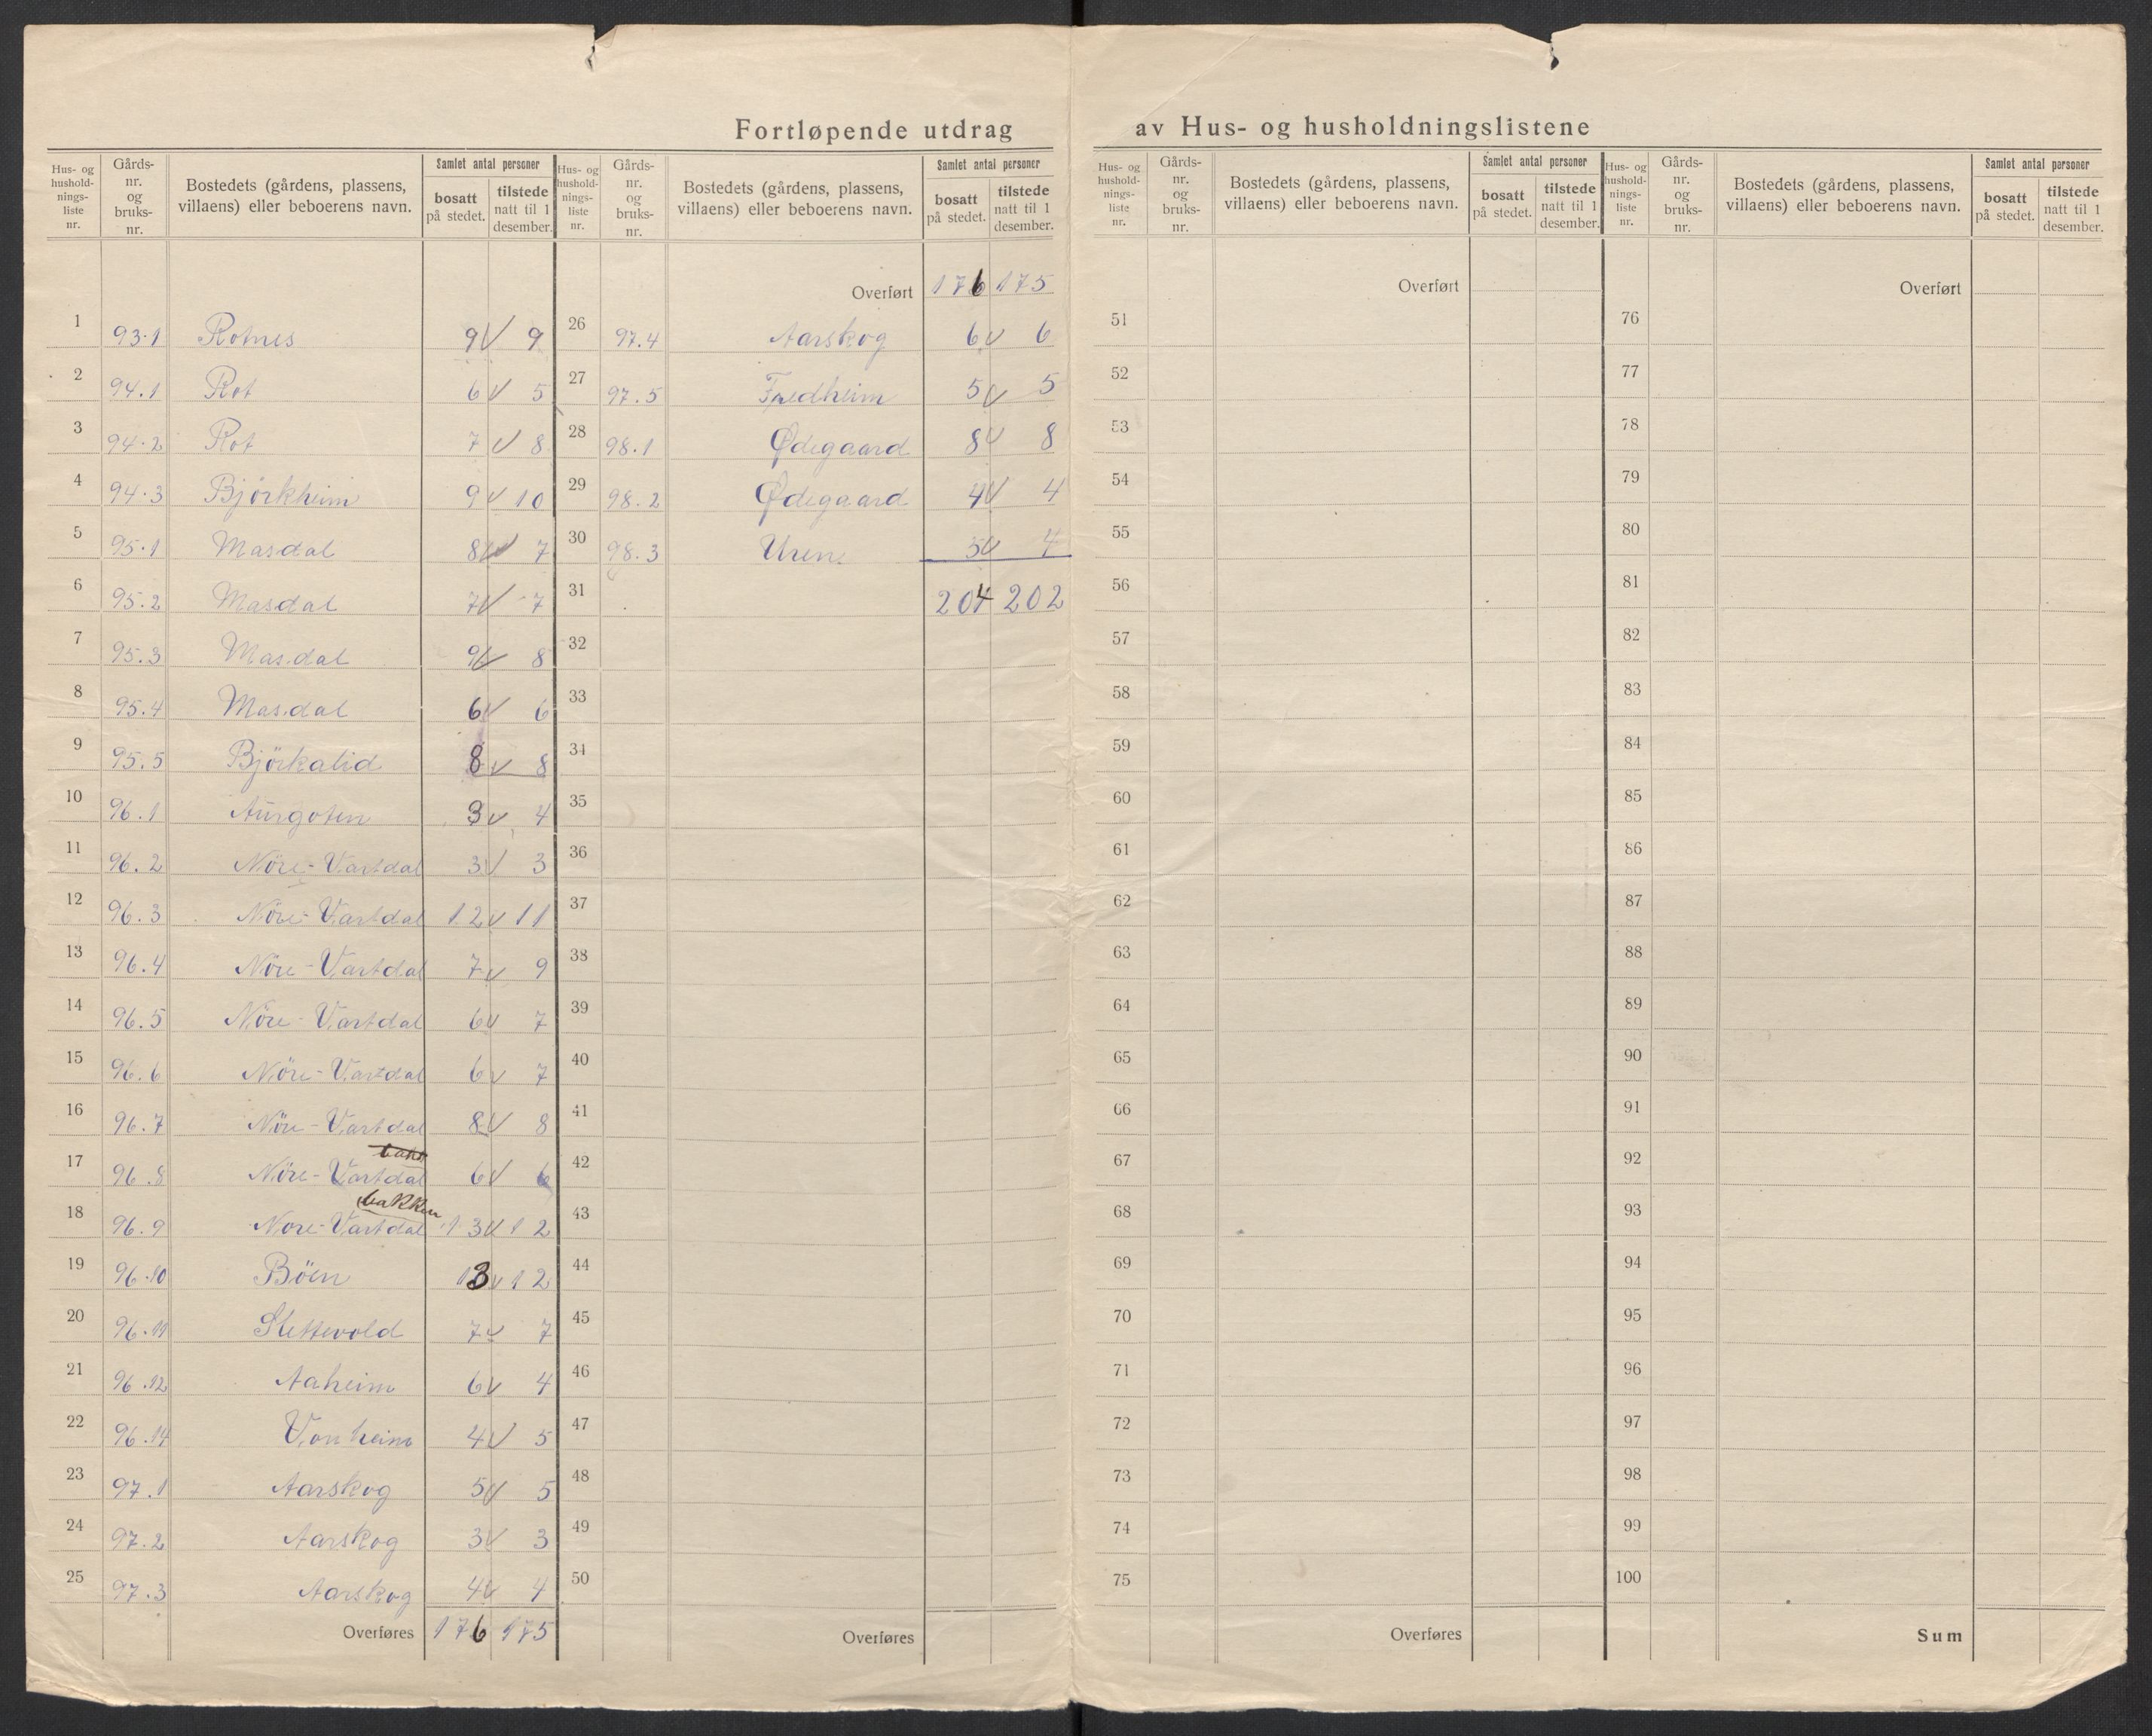 Fortløpende utdrag av Hus- og husholdningslistene
Hus- og hushold-nings-liste nr. | Gårds-nr. og bruks-nr. | Bostedets (gårdens, plassens, villaens) eller beboerens navn. | Samlet antal personer | bosatt på stedet. | tilstede natt til 1 desember.
1 93.1 Rotnes 9 V 9
2 94.1 Rot 6 V 5
3 94.2 Rot 7 V 8
4 94.3 Björkheim 9 V 10
5 95.1 Masdal 8 V 7
6 95.2 Masdal 7 V 7
7 95.3 Masdal 9 V 8
8 95.4 Masdal 6 V 6
9 95.5 Björkalid 8 V 8
10 96.1 Aurgoten 3 V 4
11 96.2 Nöre-Vartdal 3 V 3
12 96.3 Nöre-Vartdal 12 V 11
13 96.4 Nöre-Vartdal 7 V 9
14 96.5 Nöre-Vartdal 6 V 7
15 96.6 Nöre-Vartdal 6 V 7
16 96.7 Nöre-Vartdal 8 V 8
17 96.8 Nöre-Vartdal 6 V 6
bakken
18 96.9 Nore-Vartdal 13 V 12
19 96.10 Böen 13 V 12
20 96.11 Slettevold 7 V 7
21 96.12 Aaheim 6 V 4
22 96.14 Vonheim 4 V 5
23 97.1 Aarskog 5 V 5
24 97.2 Aarskog 3 V 3
25 97.3 Aarskog 4 V 4
Overføres 176 175
Hus- og hushold-nings-liste nr. | Gårds-nr. og bruks-nr. | Bostedets (gårdens, plassens, villaens) eller beboerens navn. | Samlet antal personer | bosatt på stedet. | tilstede natt til 1 desember.
Overført 176 175
26 97.4 Aarskog 6 V 6
27 97.5 Fredheim 5 V 5
28 98.1 Ødegaard 8 V 8
29 98.2 Ødegaard 4 V 4
30 98.3 Uren 5 V 4
31 204 202
32
33
34
35
36
37
38
39
40
41
42
43
44
45
46
47
48
49
50
Overføres
Hus- og hushold-nings-liste nr. | Gårds-nr. og bruks-nr. | Bostedets (gårdens, plassens, villaens) eller beboerens navn. | Samlet antal personer | bosatt på stedet. | tilstede natt til 1 desember.
Overført
51
52
53
54
55
56
57
58
59
60
61
62
63
64
65
66
67
68
69
70
71
72
73
74
75
Overføres
Hus- og hushold-nings-liste nr. | Gårds-nr. og bruks-nr. | Bostedets (gårdens, plassens, villaens) eller beboerens navn. | Samlet antal personer | bosatt på stedet. | tilstede natt til 1 desember.
Overført
76
77
78
79
80
81
82
83
84
85
86
87
88
89
90
91
92
93
94
95
96
97
98
99
100
Sum